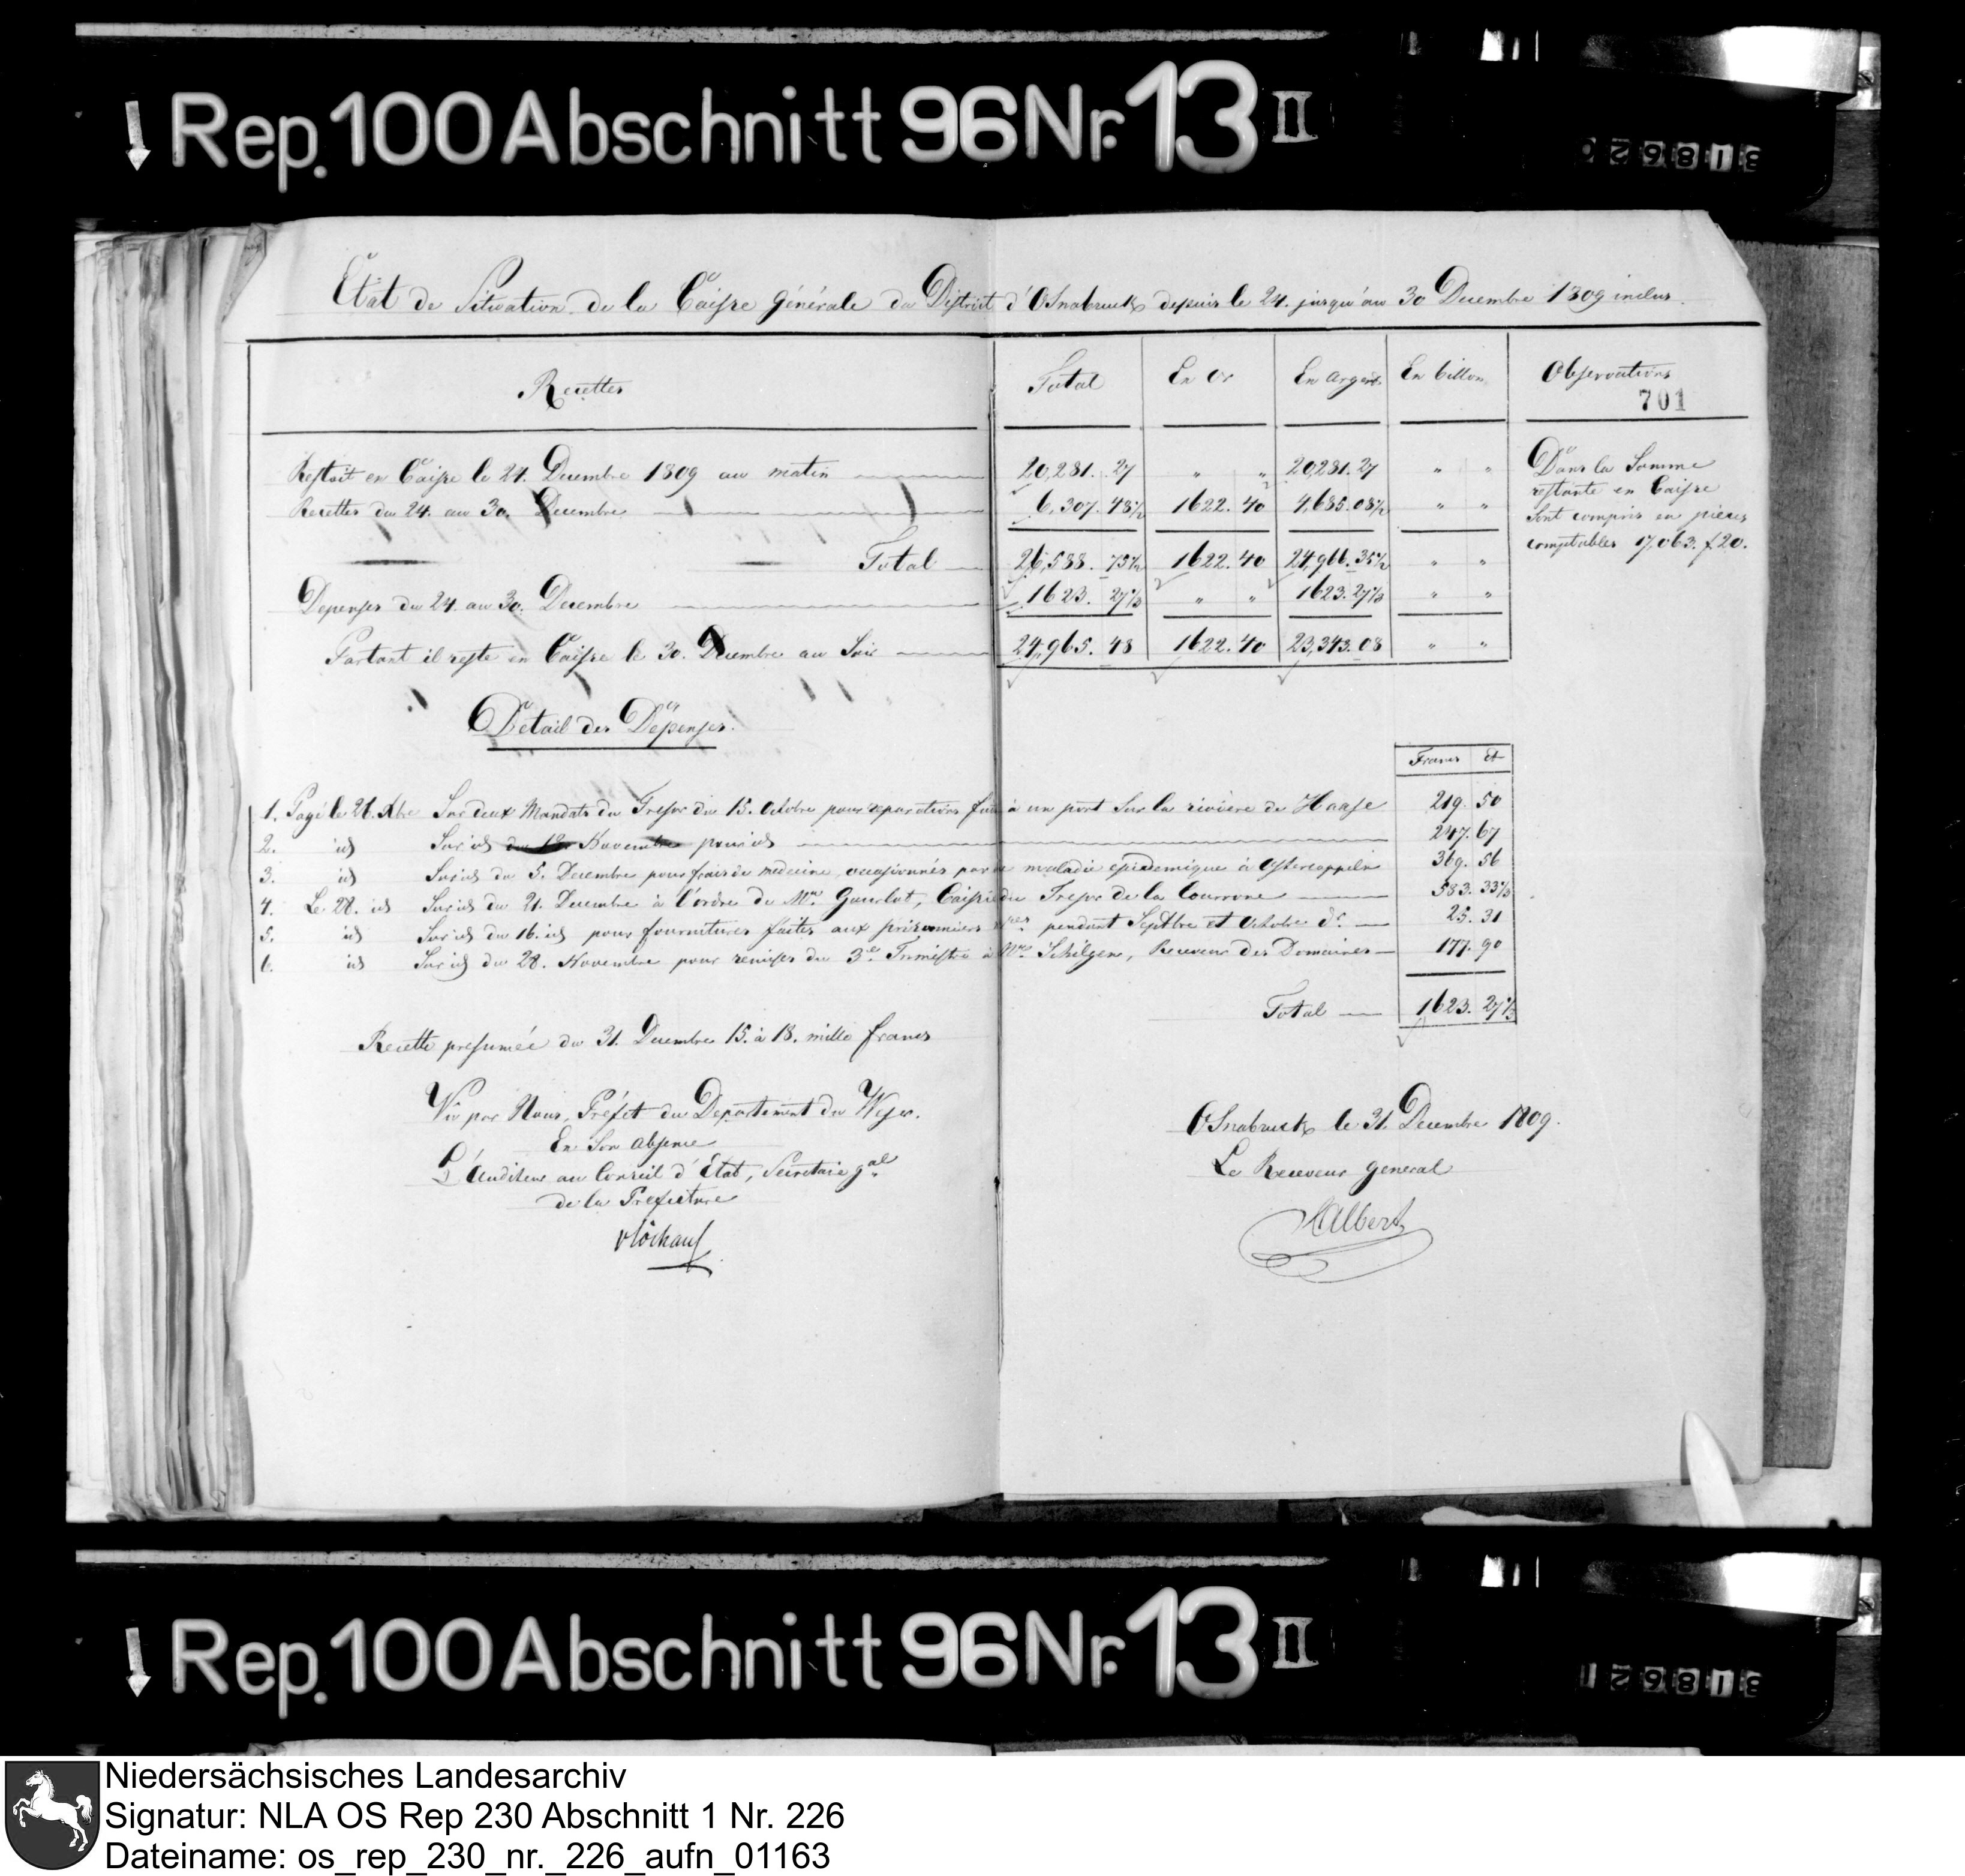 Rep. 100 Abschnitt 96 Nr. 13 II
Etat de Situation de la Caisse générale du District d'Osnabruck depuis le 24. jusqu'au 30 Decembre 1809 inclus.
Recettes Total En or En argent En billon Observations
701
Restoit en Caisse le 24. Decembre 1809 au matin 20,281. 27 " " 20,281. 27 " "
Recettes du 24. au 30. Decembre 6,307. 48½ 1622. 40 4,685. 08½ " "
Total 26,588. 75½ 1622. 40 24,966. 35½ " "
Depenses du 24. au 30. Decembre 1623. 27⅓ " " 1623. 27⅓ " "
Partant il reste en Caisse le 30. Decembre au Soir 24,965. 48 1622. 40 23,343. 08 " "
Dans la Somme
restante en Caisse
Sont compris en pièces
comptables 17,063. f 20.
Détail des Dépenses.
Francs Ct
1. Payé le 26. Xbre Sur deux Mandats du Tresor du 15. Octobre pour reparations à un pont Sur la rivière de Haase 219. 50
2. id Sur id Novembre pour id 247. 67
3. id Sur id du 5. Decembre pour frais de medecine occasionnés par maladie epidemique à Ostercappeln 369. 56
4. Le 28. id Sur id du 21. Decembre à l'ordre de Mr. Caissier du Tresor de la Couronne 583. 33⅓
5. id Sur id du 16. id pour fournitures faites aux prisonniers pendant Septbre et Octobre dr. 25. 31
6. id Sur id du 28. Novembre pour remises du 3e. Trimestre à Mr. Schilgen, Receveur des Domaines 177. 90
Total 1623. 27⅓
Recette presumée du 31. Decembre 15. à 18. mille francs
Vu par Nous, Préfet du Departement du Weser.
En Son absence
L'Auditeur au Conseil d'Etat, Secretaire gal
de la Prefecture
Osnabruck le 31. Decembre 1809.
Le Receveur general
Albert
Rep. 100 Abschnitt 96 Nr. 13 II
Niedersächsisches Landesarchiv
Signatur: NLA OS Rep 230 Abschnitt 1 Nr. 226
Dateiname: os_rep_230_nr._226_aufn_01163